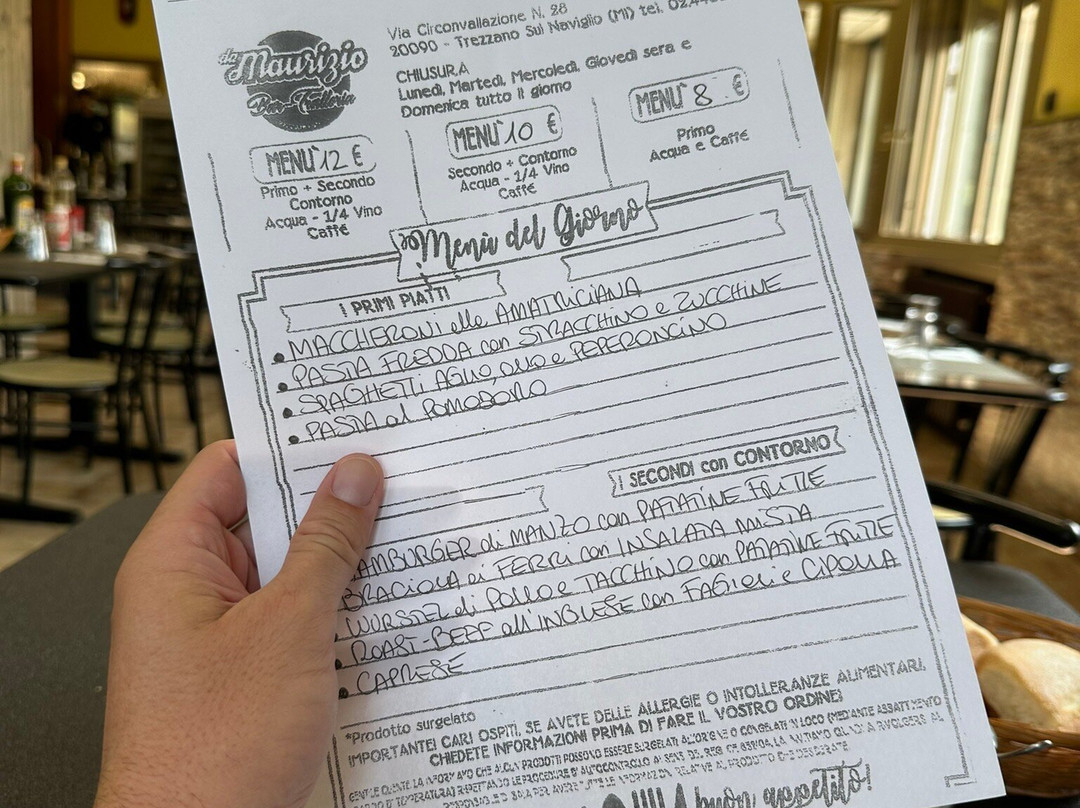 da Maurizio
Bar-Trattoria
Via Circonvallazione N. 28
20090 - Trezzano Sul Naviglio (MI) tel.
CHIUSURA
Lunedì, Martedì, Mercoledì, Giovedì sera e
Domenica tutto il giorno
MENU' 12 €
Primo + Secondo
Contorno
Acqua - 1/4 Vino
Caffè
MENU' 10 €
Secondo + Contorno
Acqua - 1/4 Vino
Caffè
MENU' 8 €
Primo
Acqua e Caffè
Menù del Giorno
I PRIMI PIATTI
• MACCHERONI alla AMATRICIANA
• PASTA FREDDA con STRACCHINO e ZUCCHINE
• SPAGHETTI AGLIO, OLIO e PEPERONCINO
• PASTA al POMODORO
I SECONDI con CONTORNO
AMBURGER di MANZO con PATATINE FRITTE
BRACIOLA ai FERRI con INSALATA MISTA
• WURSTEL di POLLO e TACCHINO con PATATINE FRITTE
• ROAST-BEEF all'INGLESE con FAGIOLI e CIPOLLA
• CAPRESE
*Prodotto surgelato
IMPORTANTE! CARI OSPITI, SE AVETE DELLE ALLERGIE O INTOLLERANZE ALIMENTARI,
CHIEDETE INFORMAZIONI PRIMA DI FARE IL VOSTRO ORDINE!
GENTILE CLIENTE LA INFORMIAMO CHE ALCUNI PRODOTTI POSSONO ESSERE SURGELATI ALL'ORIGINE O CONGELATI IN LOCO (MEDIANTE ABBATTIMENTO
buon appetito!